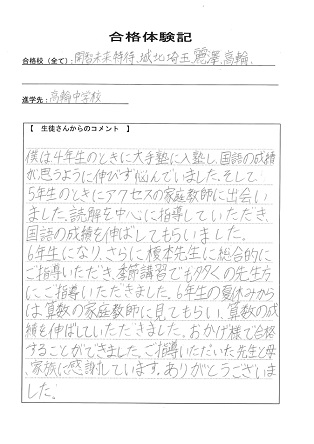 合格体験記
合格校（全て）：開智未来特待、城北埼玉、麗澤、高輪、
進学先：高輪中学校
【　生徒さんからのコメント　】
僕は4年生のときに大手塾に入塾し、国語の成績
が思うように伸びず悩んでいました。そして
5年生のときにアクセスの家庭教師に出会い
ました。読解を中心に指導していただき、
国語の成績を伸ばしてもらいました。
6年生になり、さらに榎本先生に総合的に
ご指導いただき、季節講習でも多くの先生方
にご指導いただきました。6年生の夏休みから
は算数の家庭教師に見てもらい、算数の成
績を伸ばしていただきました。おかげ様で合格
することができました。ご指導いただいた先生と母、
家族に感謝しています。ありがとうございま
した。